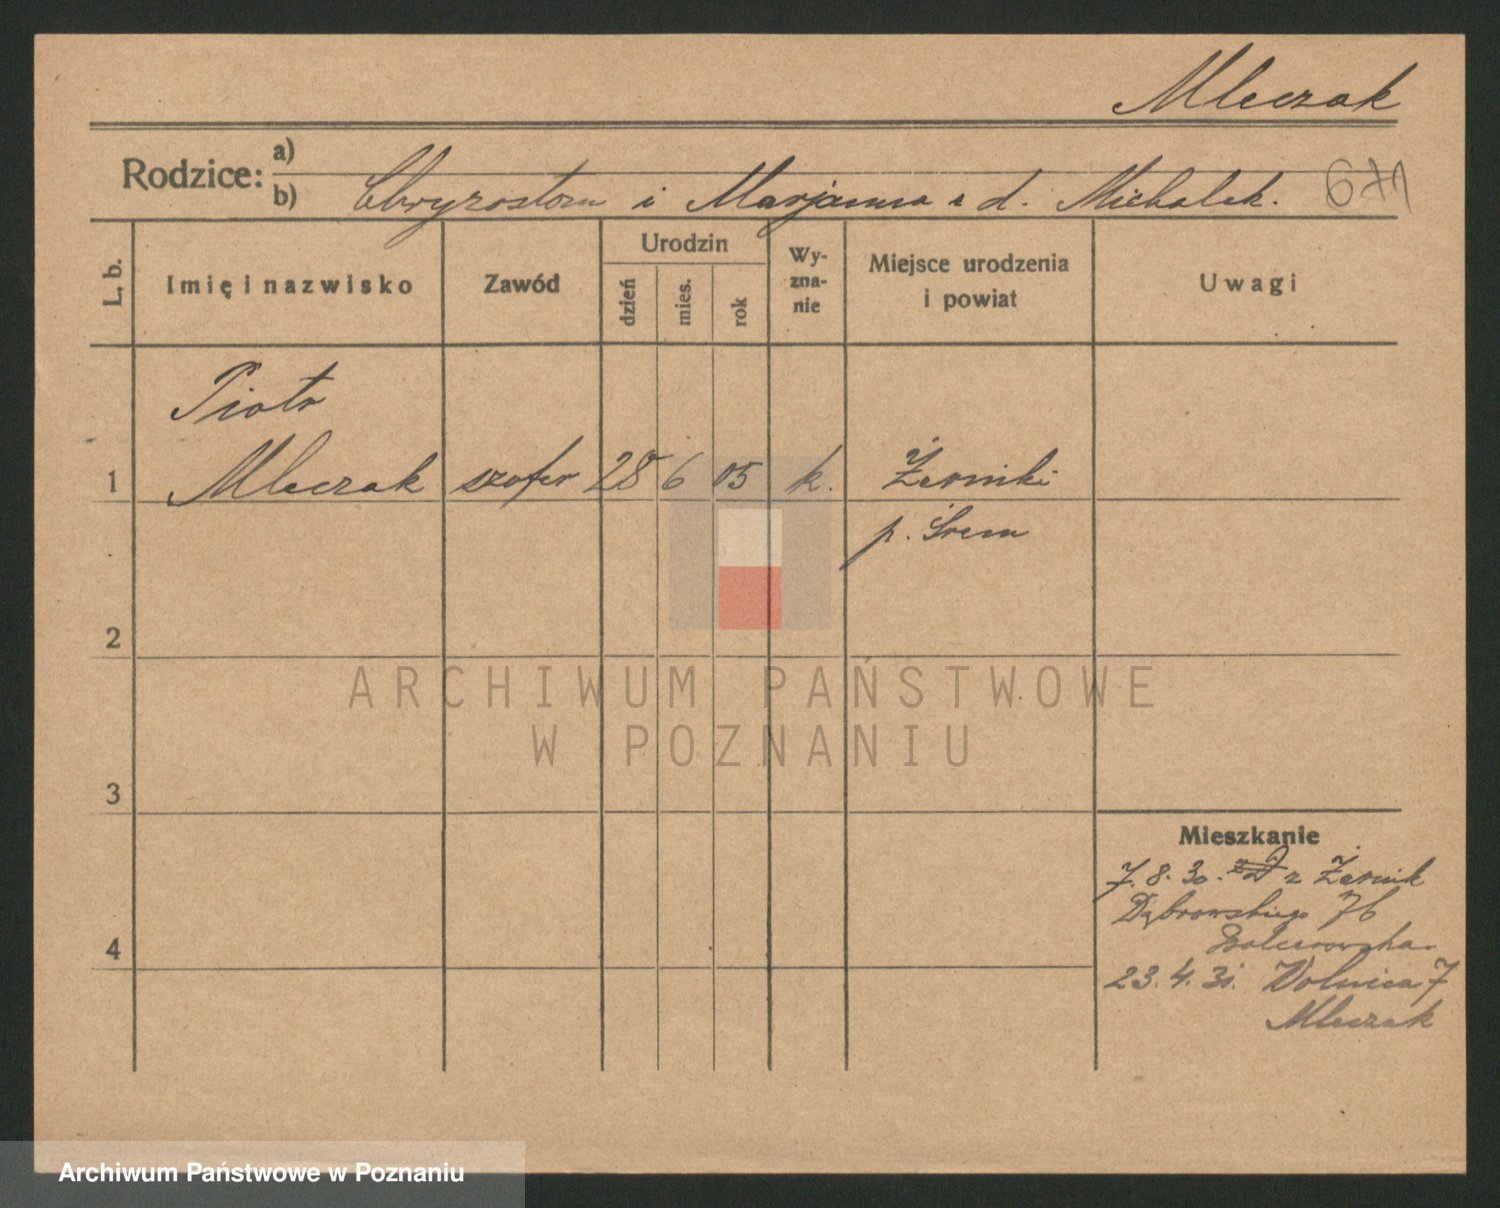 Mleczak
Rodzice: a)
b) Chryzostom i Marjanna z d. Michalak.
L. b.
Imię i nazwisko
Zawód
Urodzin
dzień
mies.
rok
Wy-
zna-
nie
Miejsce urodzenia
i powiat
Uwagi
Piotr
1 Mleczak szofer 28 6 05 k. Żerniki
p. Śrem
2
3
4
Mieszkanie
7. 8. 30. z Żernik
Dąbrowskiego 76
23. 4. 31. Wolnica 7
Mleczak
ARCHIWUM PAŃSTWOWE
W POZNANIU
Archiwum Państwowe w Poznaniu